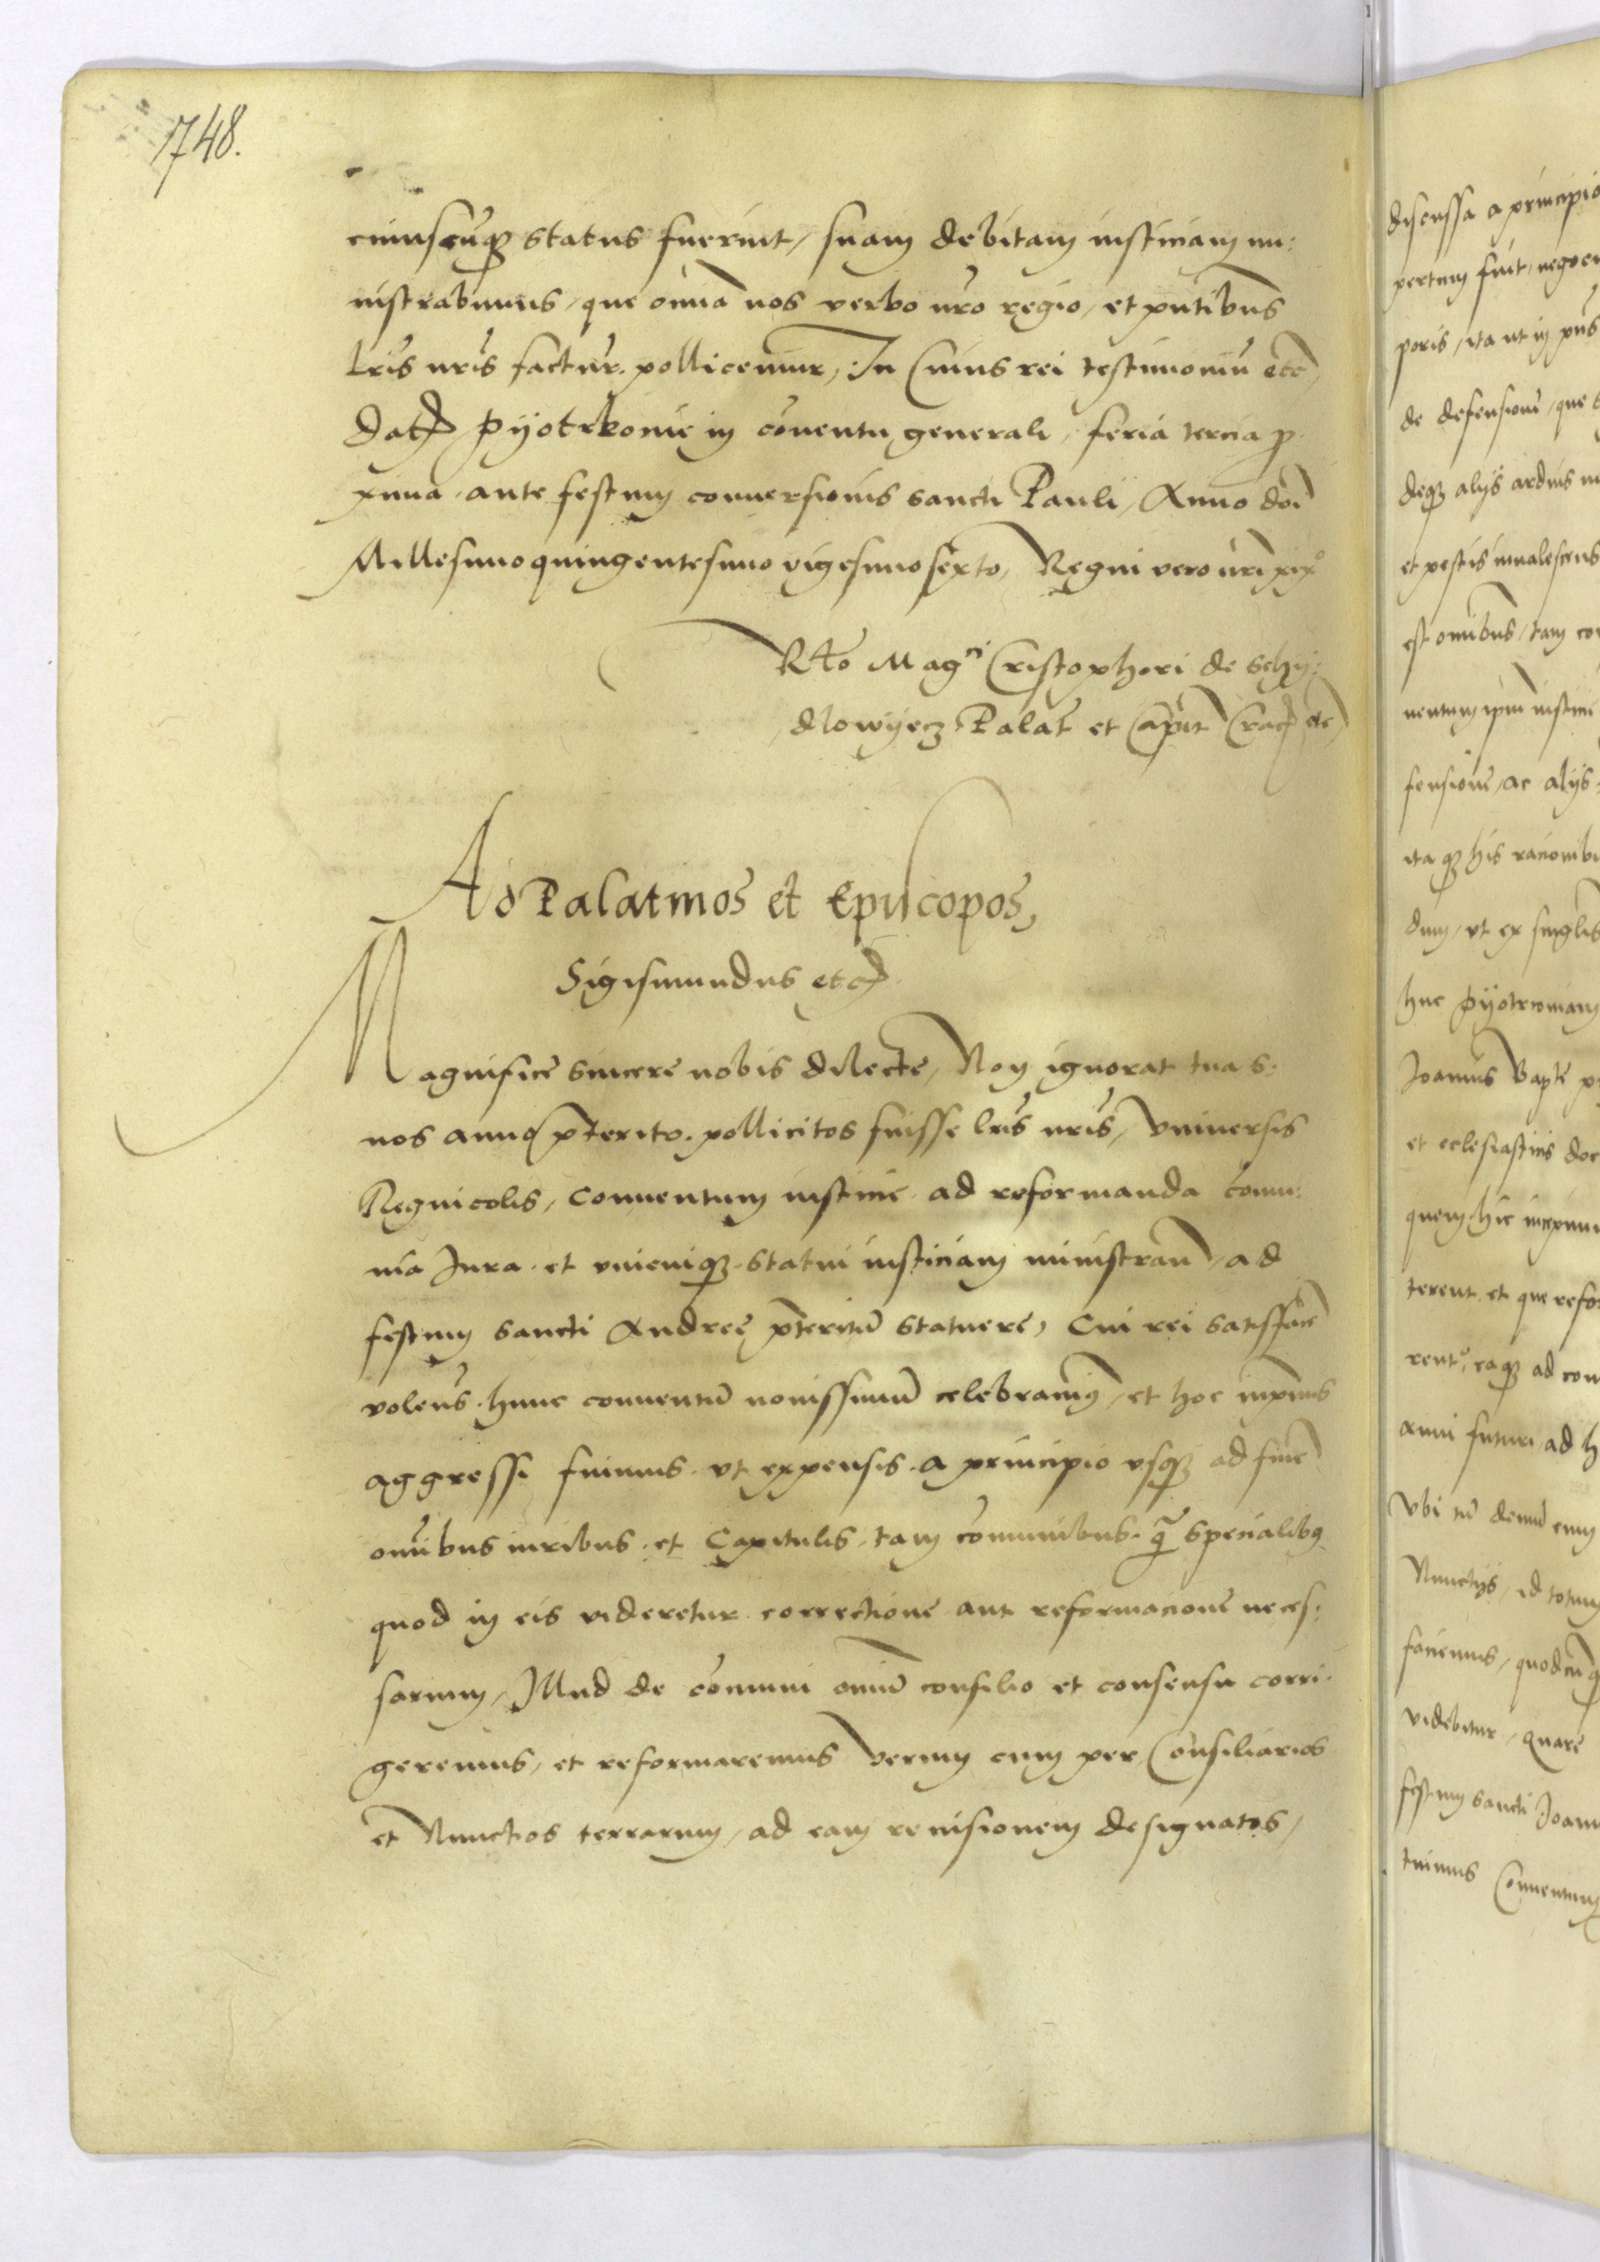 1748.
cuiuscūq3 status fuerint, suam debitam iusticiam mi:
nistrabimus, que oīnia nos verbo nrō regio, et pn̄tibus
lrīs nrīs facturꝭ pollicemur, In Cuius rei testimoniū etc̄
Datꝭ Pyotrkovie in cōventu generali, feria tercia p
xima ante festum conversionis sancti Pauli, Anno dnī
Millesimo quingentesimo vigesimosexto, Regni vero nrī xix°
Rto Magci Cristophori de Schy:
dlowyecz Palat et Capit Cracꝭ etc
Ad Palatinos et Episcopos,
Sigismundus etcꝭ
Magnifice sincere nobis dilecte, Non ignorat tua s:
nos anno p̄terito pollicitos fuisse lrīs nrīs, vniversis
Regnicolis, conventum iusticie ad reformanda cōmu:
nia Iura et vnicuiq3 statui iusticiam ministran̄, ad
festum sancti Andreę p̄teritū statuere, Cui rei satisfac̄e
volen̄s hunc conventū novissimū celebravimꝰ, et hoc inpr̄mis
aggressi fuimus vt expensis a principio vsq3 ad finē
om̄ibus iuribus et Capitulis tam cōmunibus q̄ specialibꝰ
quod in eis videretur correctione aut reformacione neces:
sarium, Illud de cōmuni om̄iū consilio et consensu corri
geremus, et reformaremus Verum cum per Consiliarios
et Nunctios terrarum, ad eam revisionem designatos,
discussa a principio
pertum fuit, negoci
poris, ita ut in pn̄s
de defensione, que
deq3 alijs arduis
et pestis invalescens
est om̄ibus, tam
ventum ipm̄ iusticie
fensione, ac alijs
itaq3 his racionibu
dum, vt ex singlis
huc Pyotrcoviam
Ioannis Bapte
et ecclesiasticis
quem hic
terent et que refor
rentꝰ, eaq3 ad con
anni futuri ad h
Vbi tū demū cum
Nunctijs, id totum
faciemus, quodcūq
videbitur, Quare
festum sancti Ioann
tuimus Conventum